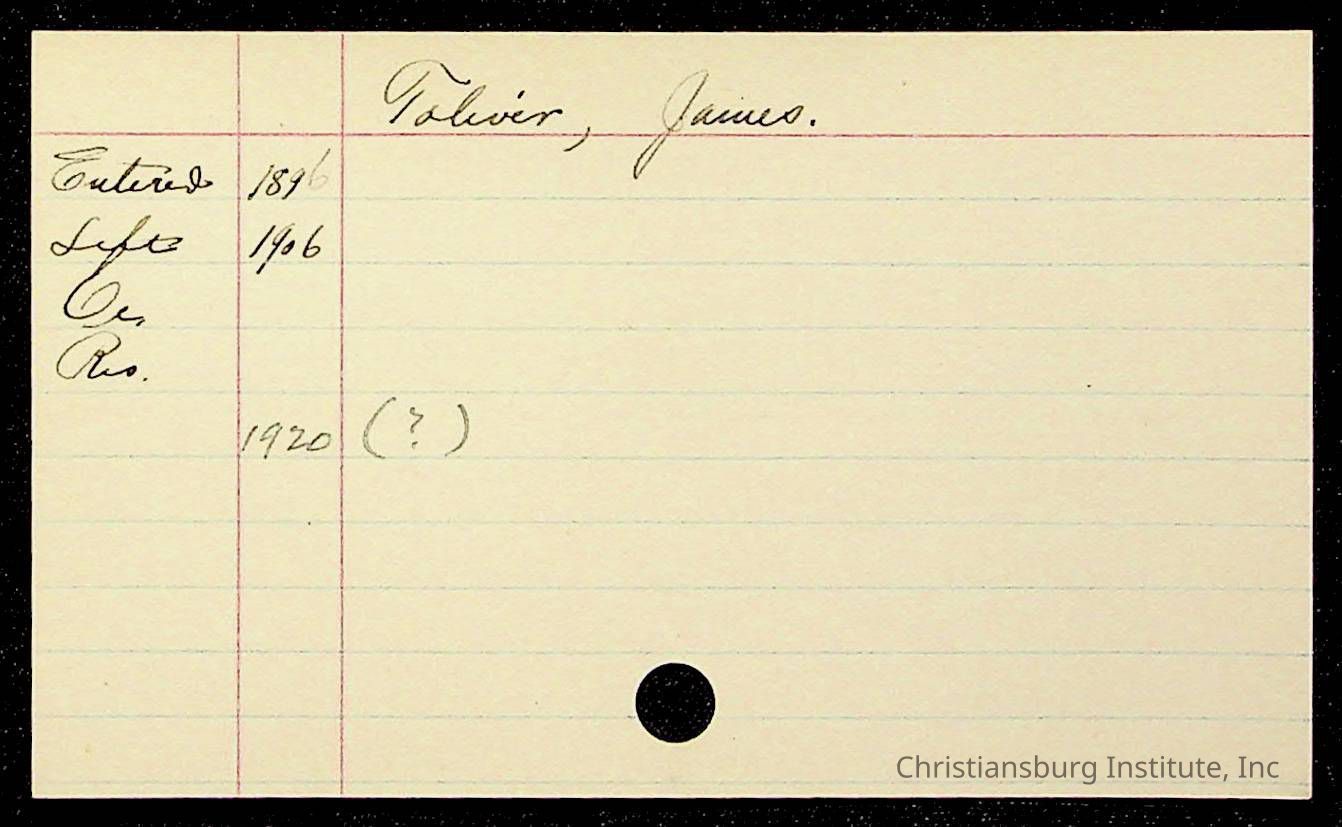 Toliver, James.
Entered 1896
Left 1906
Oc.
Res.
1920 (?)
Christiansburg Institute, Inc